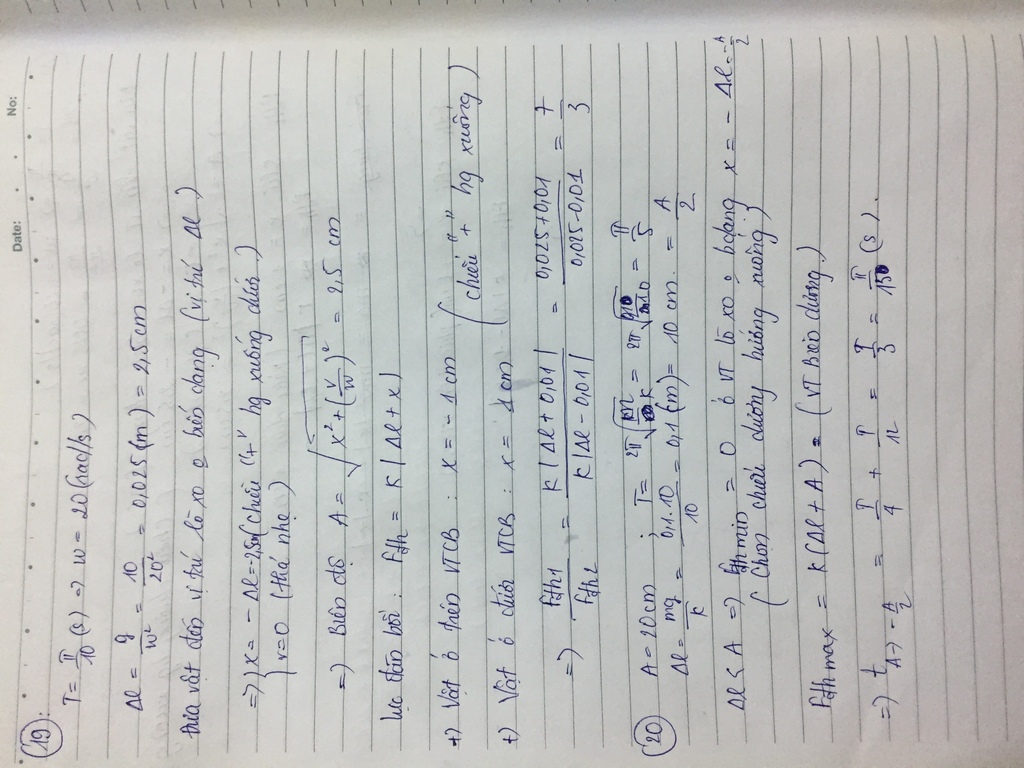 Date: No:
19:
T = π/10 (s) => w = 20 (rad/s)
Δl = g/w² = 10/20² = 0,025 (m) = 2,5 cm
Đưa vật đến vị trí lò xo o biến dạng (vị trí Δl)
=> { x = - Δl = -2,5cm (chiều "+" hg xuống dưới)
v = 0 (thả nhẹ)
=> Biên độ A = √(x² + (v/w)²) = 2,5 cm
Lực đàn hồi: Fđh = K|Δl + x|
+) Vật ở trên VTCB : x = - 1 cm
(chiều "+" hg xuống)
+) Vật ở dưới VTCB : x = 1 cm
=> Fđh1/Fđh2 = K|Δl + 0,01|/K|Δl - 0,01| = 0,025+0,01/0,025-0,01 = 7/3
20 A = 20 cm ; T = 2π√(m/K) = 2π√(0,1/10) = π/5
Δl = mg/K = 0,1.10/10 = 0,1 (m) = 10 cm. = A/2
Δl < A => Fđh min = 0 ở VT lò xo o bdạng x = - Δl = -A/2
(Chọn chiều dương hướng xuống)
Fđh max = K(Δl + A) = (VT Biên dương)
=> t A→ -A/2 = T/4 + T/12 = T/3 = π/15 (s).